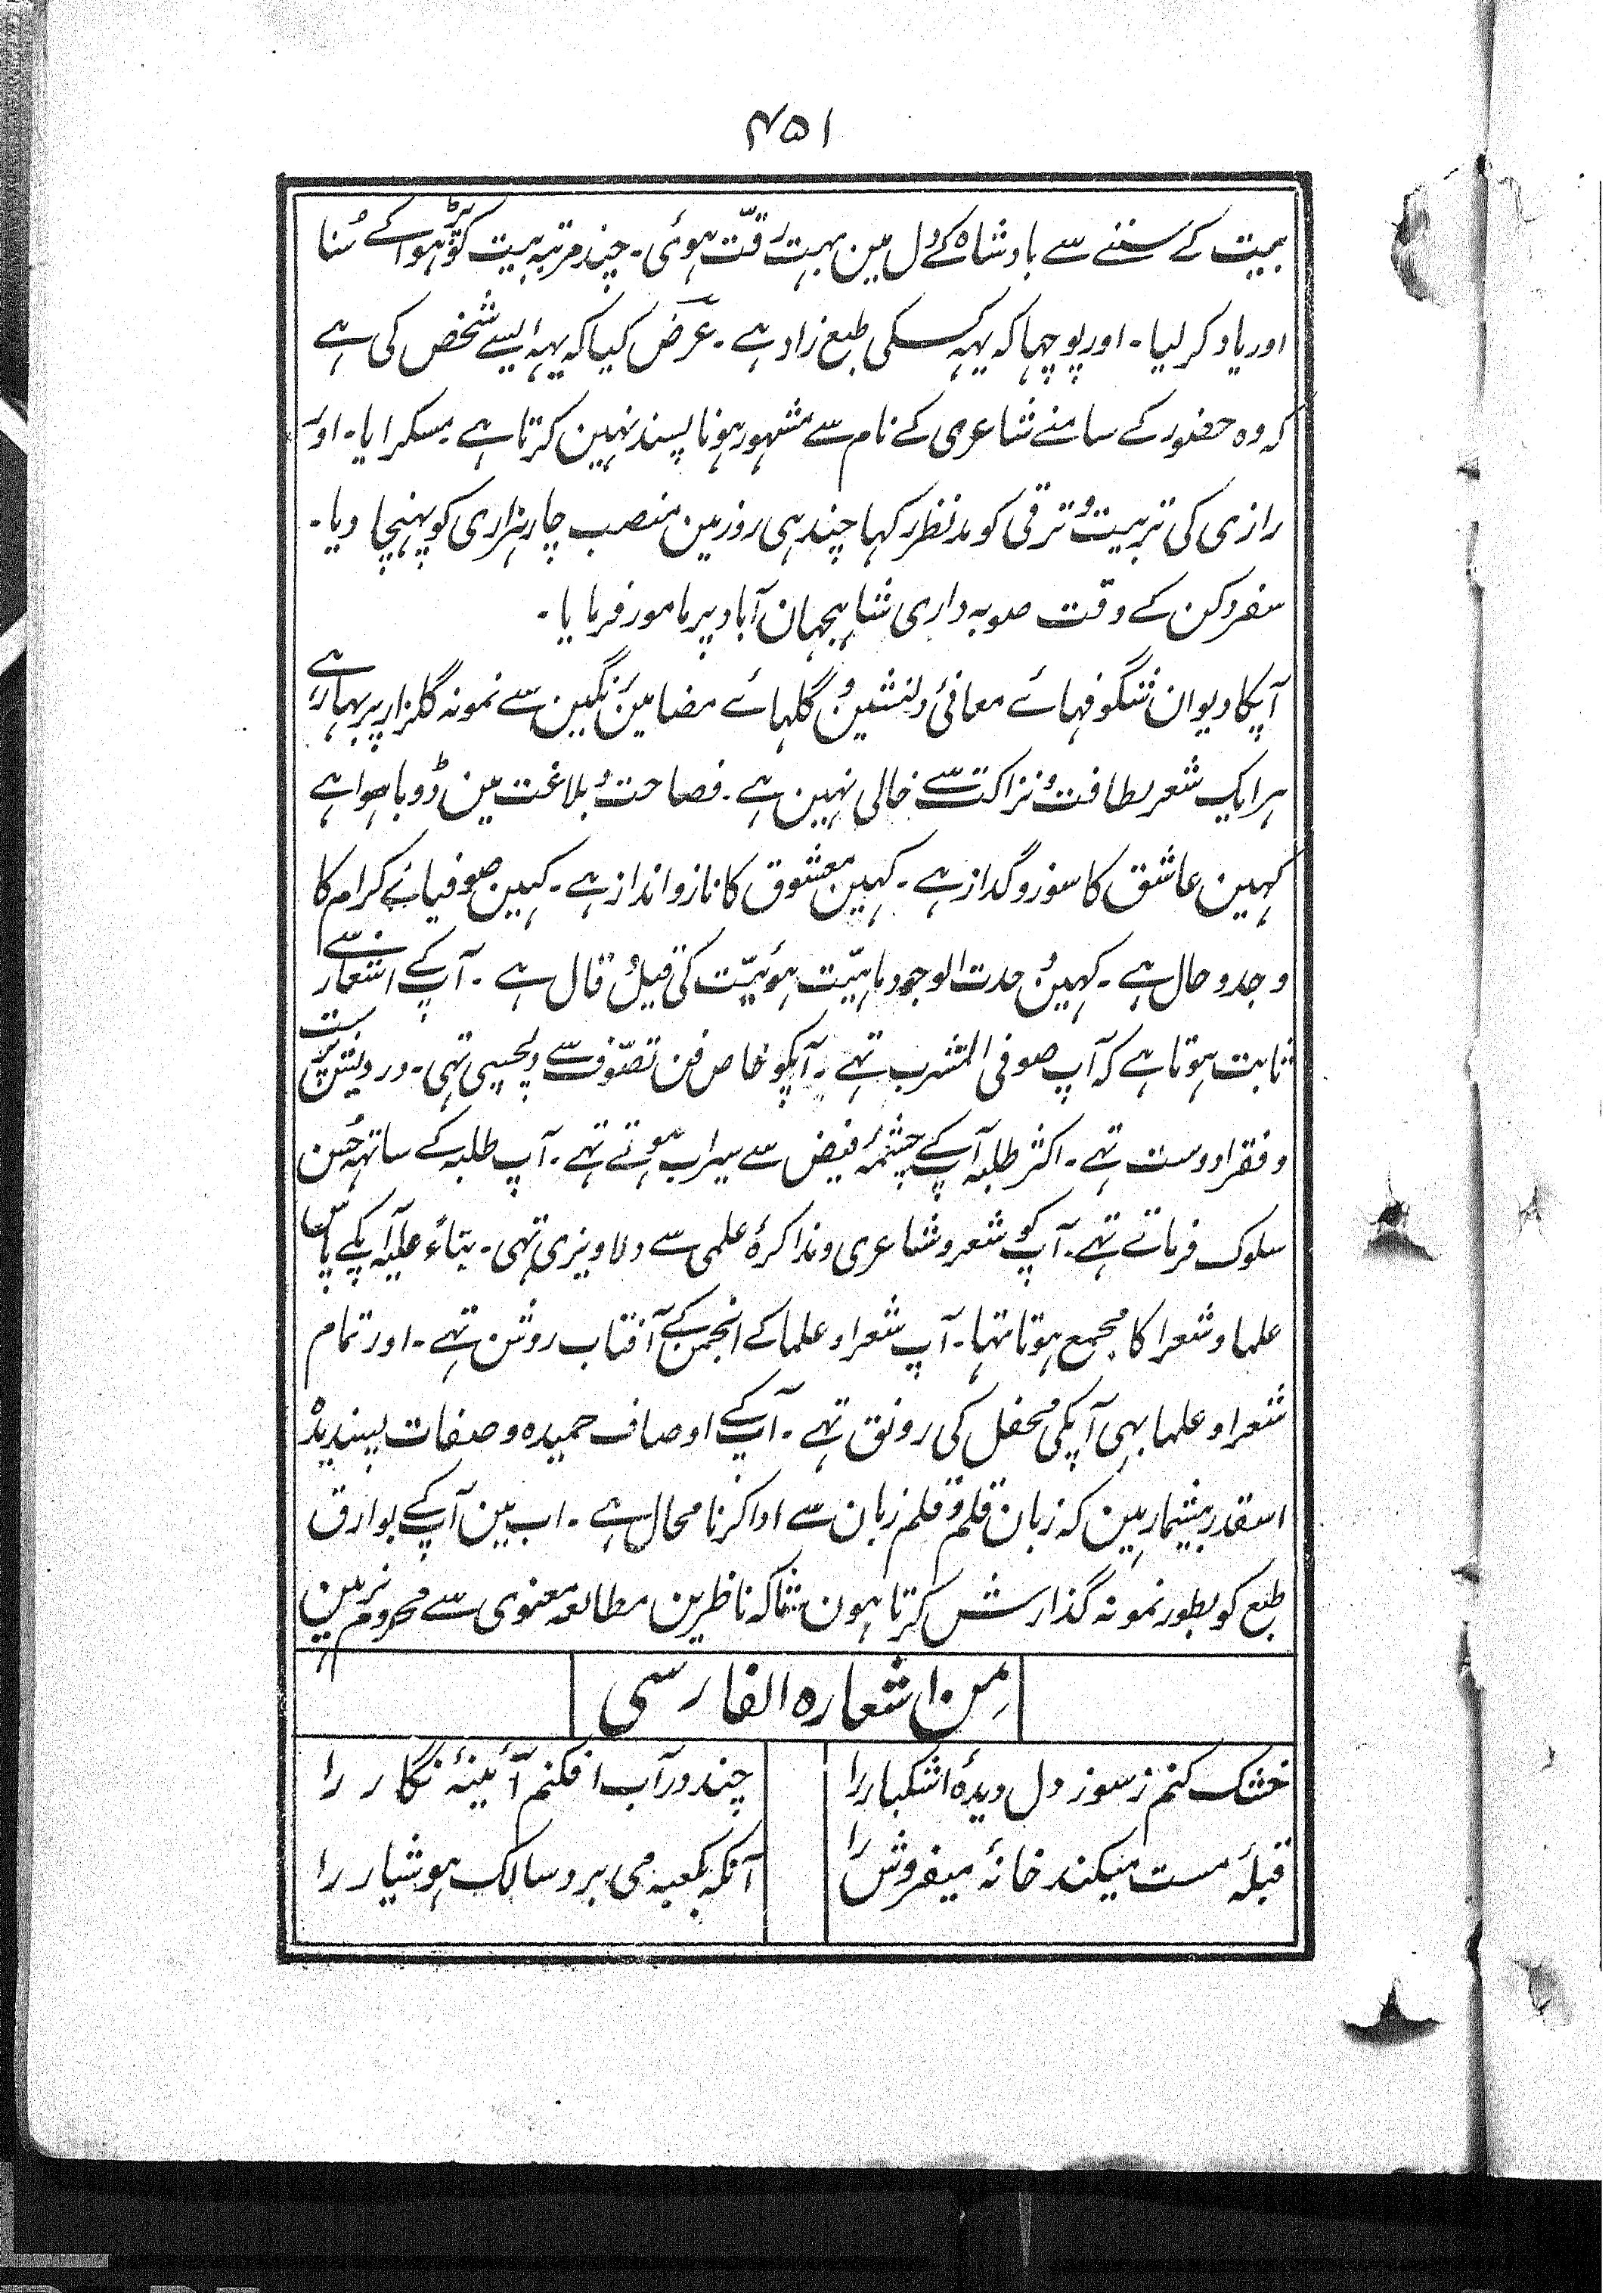 ۴۵۱
بیت کے سننے سے بادشاہ کے دل مین بہت رقّت ہوئی۔ چند مرتبہ بیت کو پڑہوا کے سُنا
اور یاد کر لیا۔ اور پوچہا کہ یہہ کسکی طبع زاد ہے۔ عرض کیا کہ یہہ ایسے شخص کی ہے
کہ وہ حضور کے سامنے شاعری کے نام سے مشہور ہونا پسند نہین کرتا ہے۔ مسکرایا۔ اور
رازی کی تربیت و ترقی کو مد نظر رکہا چند ہی روز مین منصب چار ہزاری کو پہنچا دیا۔
سفر دکن کے وقت صوبہ داری شاہجہان آباد پر مامور فرمایا۔
آپکا دیوان شگوفہائے معانئ دلنشین و گلہائے مضامین رنگین سے نمونہ گلزار پر بہار ہے
ہر ایک شعر لطافت و نزاکت سے خالی نہین ہے۔ فصاحت و بلاغت مین ڈوبا ہوا ہے
کہین عاشق کا سوز و گداز ہے۔ کہین معشوق کا ناز و انداز ہے۔ کہین صوفیائے کرام کا
وجد و حال ہے۔ کہین وحدت الوجود ماہیّت ہوئیّت کی قیل و قال ہے۔ آپ کے اشعار سے
ثابت ہوتا ہے کہ آپ صوفی المشرب تہے۔ آپکو خاص فن تصوّف سے دلچسپی تہی۔ درویش پرست
و فقرا دوست تہے۔ اکثر طلبہ آپ کے چشمۂ فیض سے سیراب ہوتے تہے۔ آپ طلبہ کے ساتہہ حُسن
سلوک فرماتے تہے۔ آپ کو شعر و شاعری و مذاکرۂ علمی سے دلاویزی تہی۔ بناءً علیہ آپکے پاس
علما و شعرا کا مجمع ہوتا تہا۔ آپ شعرا و علما کے انجمن کے آفتاب روشن تہے۔ اور تمام
شعرا و علما بہی آپکی محفل کی رونق تہے۔ آپ کے اوصاف حمیدہ و صفات پسندیدہ
اسقدر بیشمار ہین کہ زبان قلم و قلم زبان سے ادا کرنا محال ہے۔ اب مین آپ کے بوارق
طبع کو بطور نمونہ گذارش کرتا ہون تاکہ ناظرین مطالعہ معنوی سے محروم نرہین
مِن اشعارہ الفارسی
خشک کنم ز سوز دل دیدۂ اشکبار را چند در آب افکنم آئینۂ نگار را
قبلہ مست میکند خانۂ میفروش را آنکہ بکعبہ می برد سالک ہوشیار را